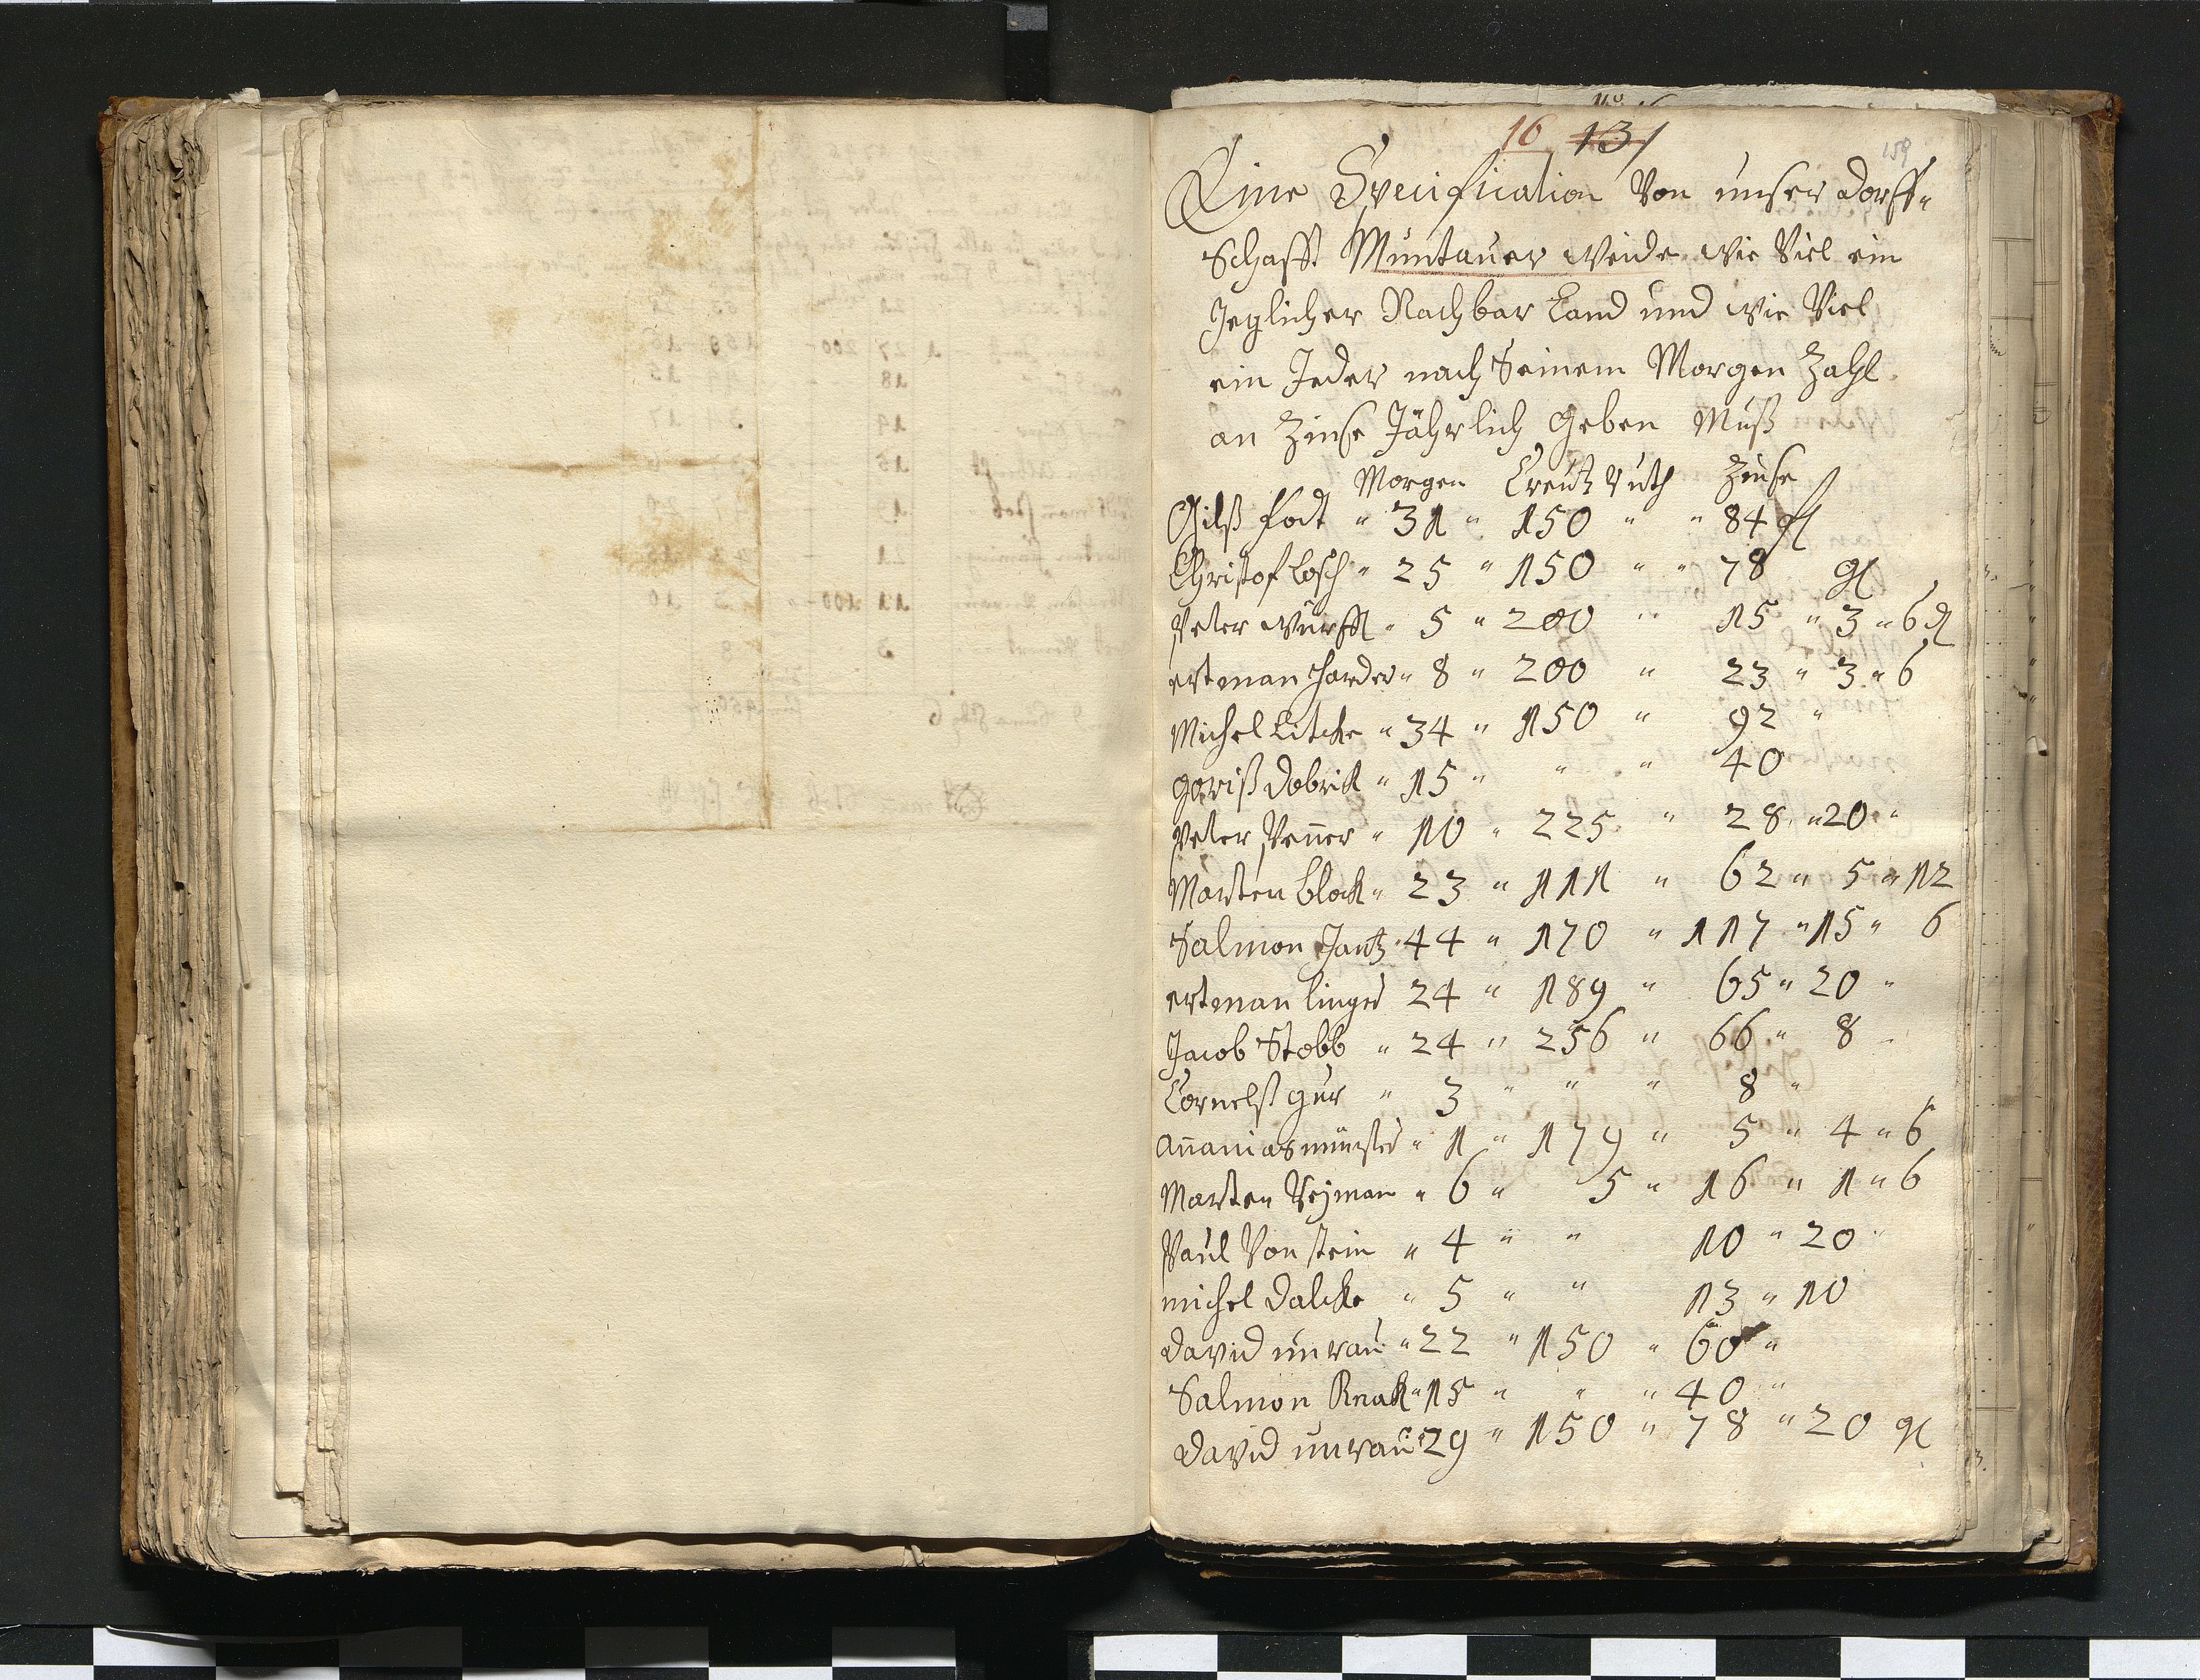 16 131
159
Eine Specification Von unser Dorff„
Schafft Muntauer Weide Wie Viel ein
Jeglicher Nachbar Land und Wie Viel
ein Jeder nach Seinem Morgen Zahl
an Zinse Jährlich Geben Muß
Morgen Creutz Ruth Zinse
Gilß fodt „ 31 „ 150 „ „ 84 fl
Christof Losch „ 25 „ 150 „ „ 78 gl
Peter Wurfft „ 5 „ 200 „ 15 „ 3 „ 6 d
ertman Harder „ 8 „ 200 „ 23 „ 3 „ 6
Michel Litcke „ 34 „ 150 „ 92 „
Goriß Dobrick „ 15 „ „ „ 40
Peter Penner „ 10 „ 225 „ 28 „ 20 „
Marten Block „ 23 „ 111 „ 62 „ 5 „ 12
Salmon Jantz „ 44 „ 170 „ 117 „ 15 „ 6
ertman Linger 24 „ 189 „ 65 „ 20 „
Jacob Stobb „ 24 „ 256 „ 66 „ 8 „
Cornelß gur „ 3 „ „ „ 8 „
Ananias münster „ 1 „ 179 „ 5 „ 4 „ 6
Marten Rejman „ 6 „ 5 „ 16 „ 1 „ 6
Paul Von stein „ 4 „ „ 10 „ 20 „
michel Dalcke „ 5 „ „ 13 „ 10
David unrau „ 22 „ 150 „ 60 „
Salmon Knak „ 15 „ „ „ 40 „
David unrau „ 29 „ 150 „ 78 „ 20 gl